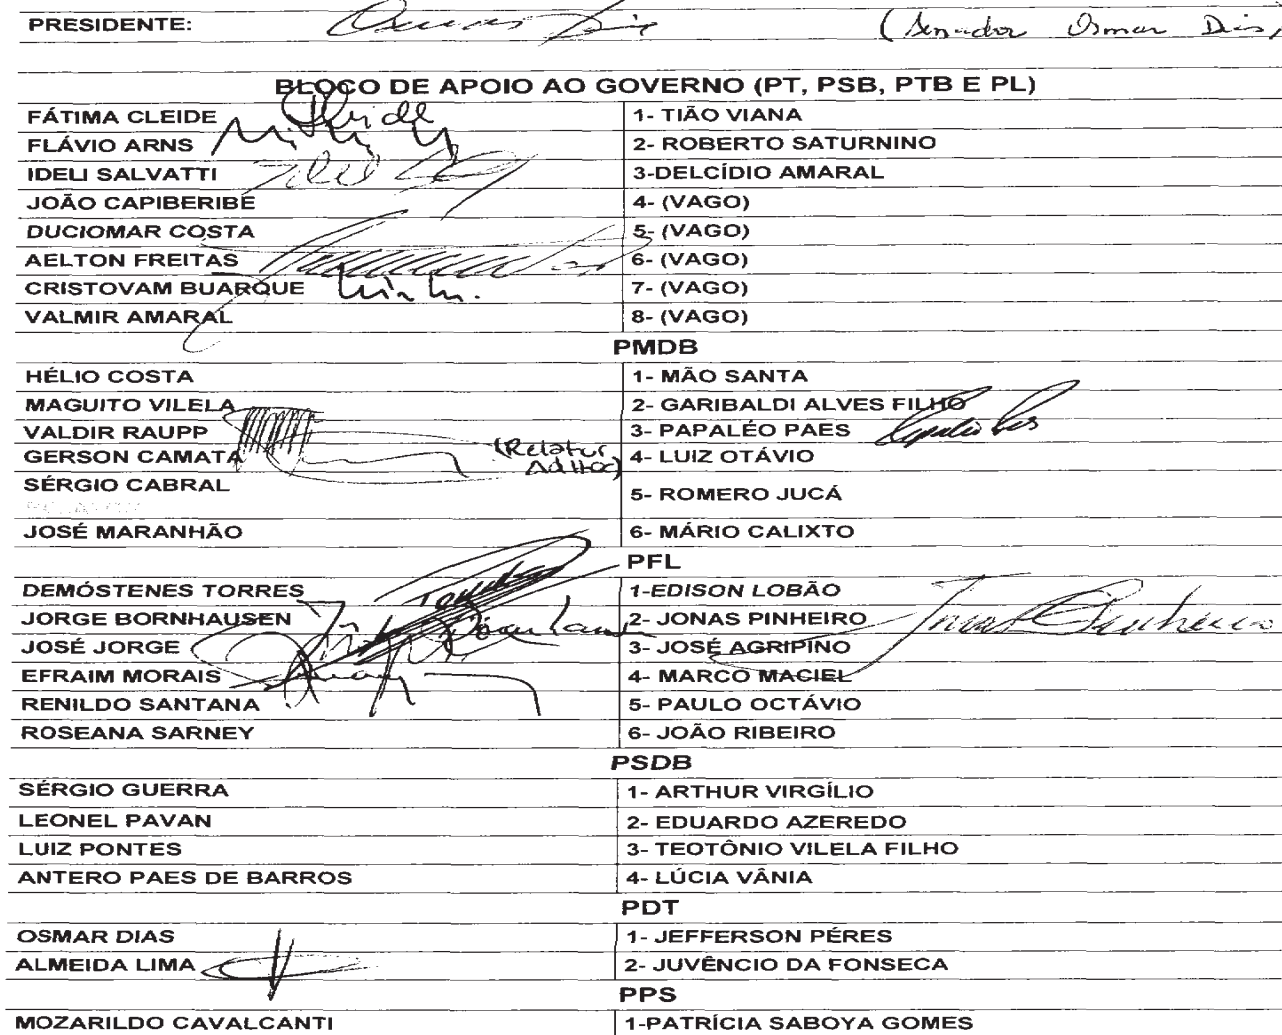 PRESIDENTE: (Senador Osmar Dias)
BLOCO DE APOIO AO GOVERNO (PT, PSB, PTB E PL)
FÁTIMA CLEIDE 1- TIÃO VIANA
FLÁVIO ARNS 2- ROBERTO SATURNINO
IDELI SALVATTI 3-DELCÍDIO AMARAL
JOÃO CAPIBERIBE 4- (VAGO)
DUCIOMAR COSTA 5- (VAGO)
AELTON FREITAS 6- (VAGO)
CRISTOVAM BUARQUE 7- (VAGO)
VALMIR AMARAL 8- (VAGO)
PMDB
HÉLIO COSTA 1- MÃO SANTA
MAGUITO VILELA 2- GARIBALDI ALVES FILHO
VALDIR RAUPP 3- PAPALÉO PAES
GERSON CAMATA (Relator Ad Hoc) 4- LUIZ OTÁVIO
SÉRGIO CABRAL 5- ROMERO JUCÁ
JOSÉ MARANHÃO 6- MÁRIO CALIXTO
PFL
DEMÓSTENES TORRES 1-EDISON LOBÃO
JORGE BORNHAUSEN 2- JONAS PINHEIRO
JOSÉ JORGE 3- JOSÉ AGRIPINO
EFRAIM MORAIS 4- MARCO MACIEL
RENILDO SANTANA 5- PAULO OCTÁVIO
ROSEANA SARNEY 6- JOÃO RIBEIRO
PSDB
SÉRGIO GUERRA 1- ARTHUR VIRGÍLIO
LEONEL PAVAN 2- EDUARDO AZEREDO
LUIZ PONTES 3- TEOTÔNIO VILELA FILHO
ANTERO PAES DE BARROS 4- LÚCIA VÂNIA
PDT
OSMAR DIAS 1- JEFFERSON PÉRES
ALMEIDA LIMA 2- JUVÊNCIO DA FONSECA
PPS
MOZARILDO CAVALCANTI 1-PATRÍCIA SABOYA GOMES